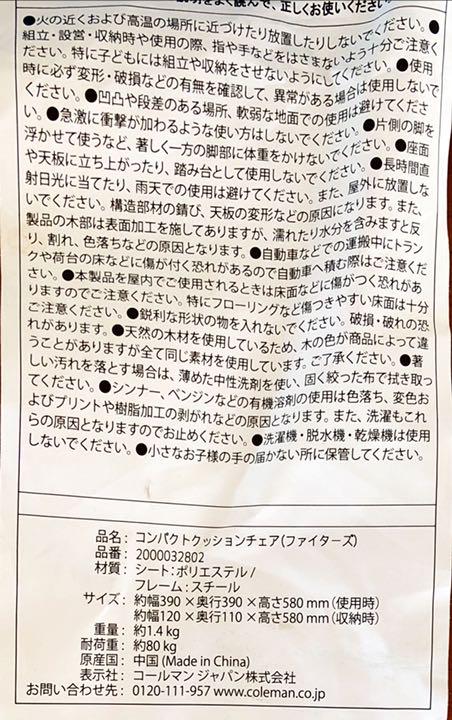 をよく読んで、正しくお使いください。
●火の近くおよび高温の場所に近づけたり放置したりしないでください。●
組立・設営・収納時や使用の際、指や手などをはさまないよう十分ご注意く
ださい。特に子どもには組立や収納をさせないようにしてください。●使用
時に必ず変形・破損などの有無を確認して、異常がある場合は使用しないで
ください。●凹凸や段差のある場所、軟弱な地面での使用は避けてくださ
い。●急激に衝撃が加わるような使い方はしないでください。●片側の脚を
浮かせて使うなど、著しく一方の脚部に体重をかけないでください。●座面
や天板に立ち上がったり、踏み台として使用しないでください。●長時間直
射日光に当てたり、雨天での使用は避けてください。また、屋外に放置しな
いでください。構造部材の錆び、天板の変形などの原因になります。また、
製品の木部は表面加工を施してありますが、濡れたり水分を含みますと反
り、割れ、色落ちなどの原因となります。●自動車などでの運搬中にトラン
クや荷台の床などに傷が付く恐れがあるので自動車へ積む際はご注意くだ
さい。●本製品を屋内でご使用されるときは床面などに傷がつく恐れがあ
りますのでご注意ください。特にフローリングなど傷つきやすい床面は十分
ご注意ください。●鋭利な形状の物を入れないでください。破損・破れの恐
れがあります。●天然の木材を使用しているため、木の色が商品によって違
うことがありますが全て同じ素材を使用しています。ご了承ください。●著
しい汚れを落とす場合は、薄めた中性洗剤を使い、固く絞った布で拭き取っ
てください。●シンナー、ベンジンなどの有機溶剤の使用は色落ち、変色お
よびプリントや樹脂加工の剥がれなどの原因となります。また、洗濯もこれ
らの原因となりますのでお止めください。●洗濯機・脱水機・乾燥機は使用
しないでください。●小さなお子様の手の届かない所に保管してください。
品名：コンパクトクッションチェア(ファイターズ)
品番：2000032802
材質：シート：ポリエステル /
フレーム：スチール
サイズ：約幅390×奥行390×高さ580mm（使用時）
約幅120×奥行110×高さ580mm（収納時）
重量：約1.4 kg
耐荷重：約80 kg
原産国：中国 (Made in China)
表示社：コールマン ジャパン株式会社
お問い合わせ先：0120-111-957 www.coleman.co.jp